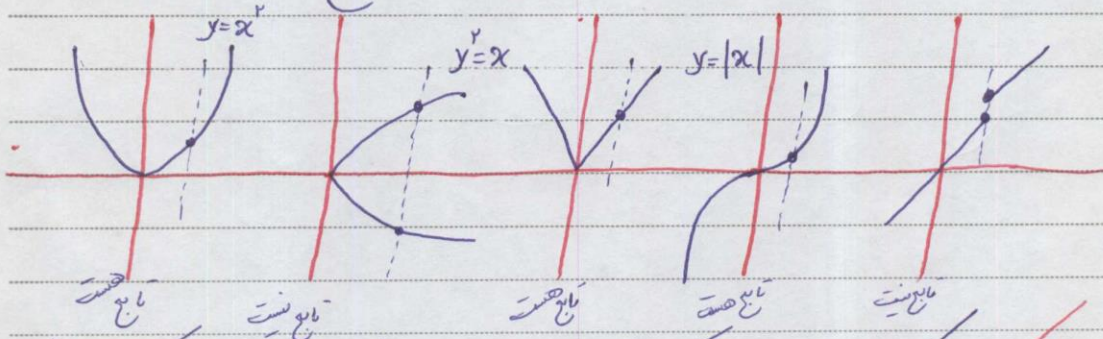 y=x²
y²=x
y=|x|
تابع هست
تابع نیست
تابع هست
تابع هست
تابع نیست